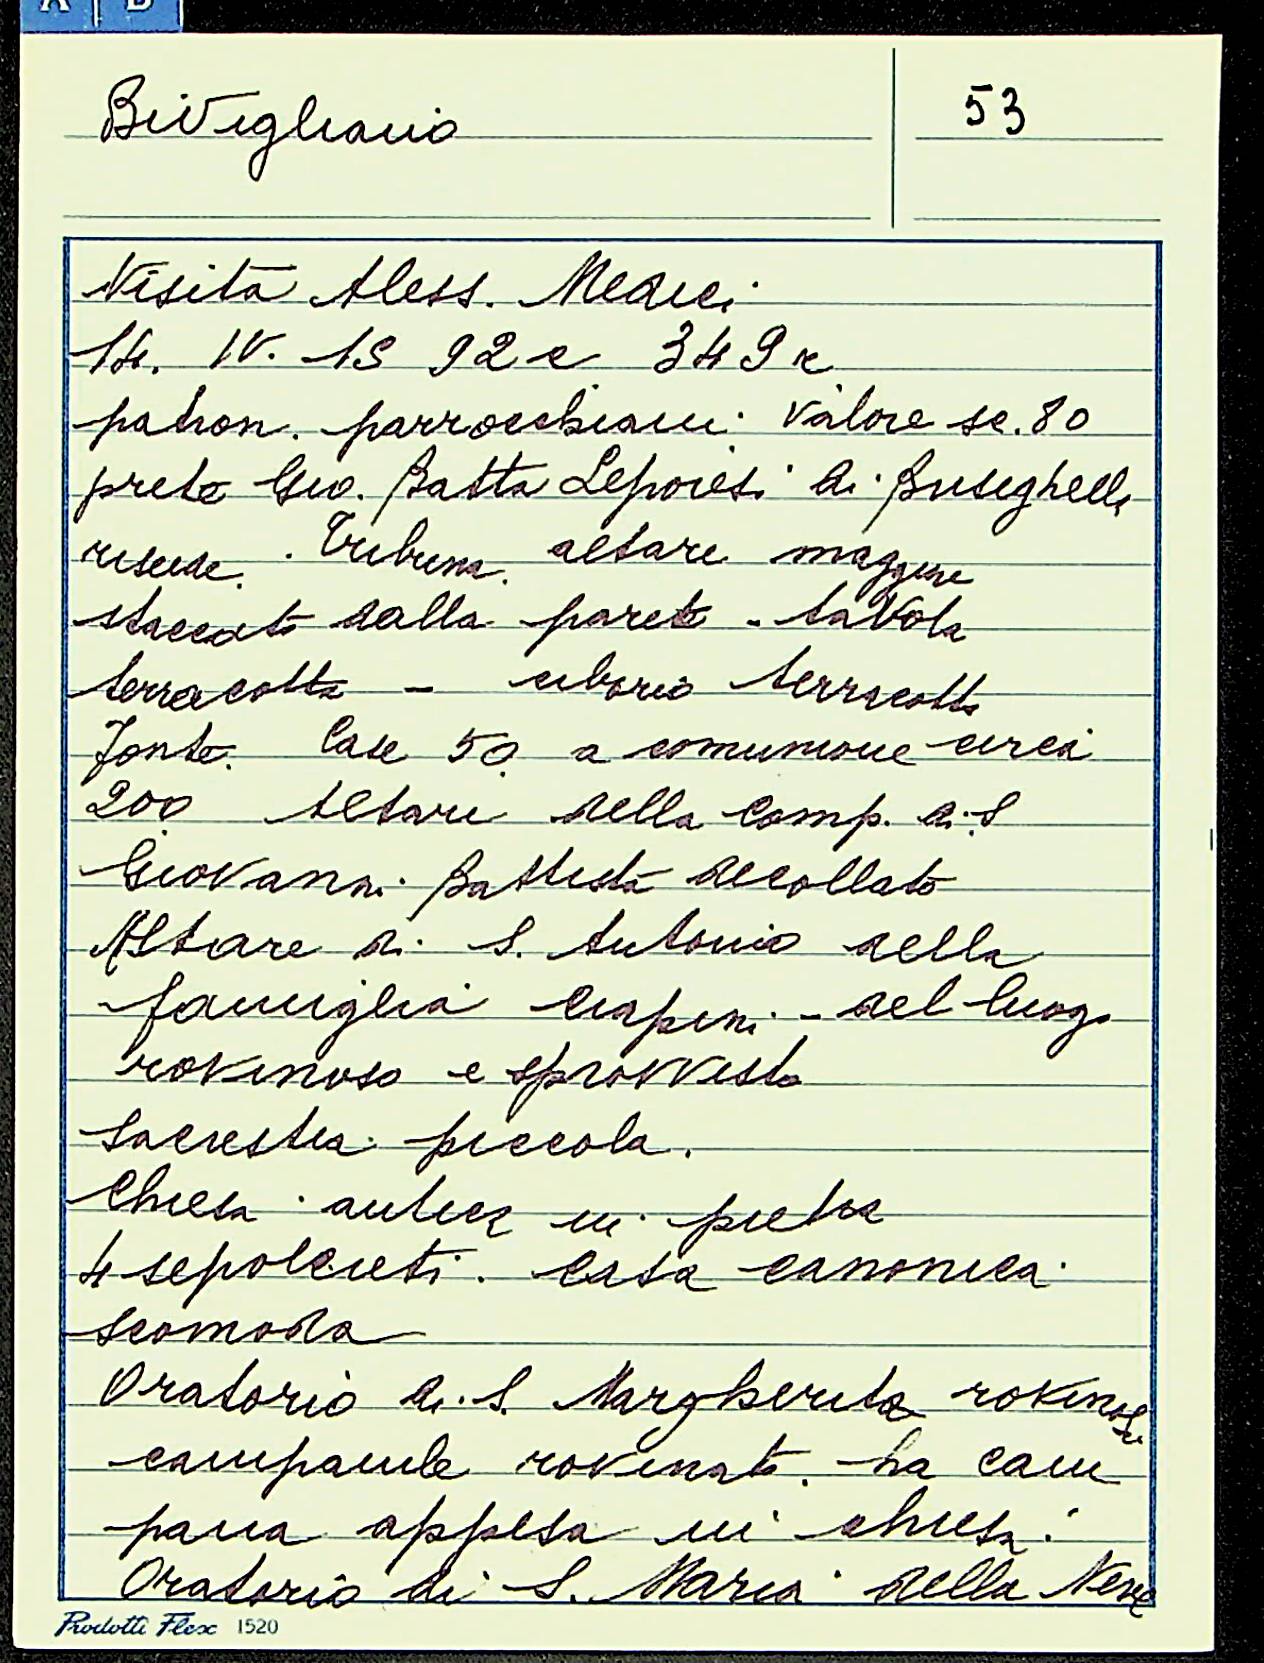 A | B
Bivigliano
53
Visita Aless. Medici
14. IV. 1592 c 349 r
patron. parrocchiani. valore sc. 80
prete Gio. Batta Leporesi di Buseghelli
risiede. Tribuna. altare maggiore
staccato dalla parete - tavola
terracotta - ciborio terracotta
Fonte. Case 50 a comunione circa
200 Altare della comp. di S
Giovanni Battista decollato
Altare di S. Antonio della
famiglia Ciapini - del luogo
rovinoso e sprovvisto
Sacrestia piccola.
Chiesa antica in pietra
4 sepolcreti. Casa canonica
scomoda
Oratorio di S. Margherita rovinoso
campanile rovinato. ha cam
pana appesa in chiesa.
Oratorio di S. Maria della Neve
Prodotti Flex 1520